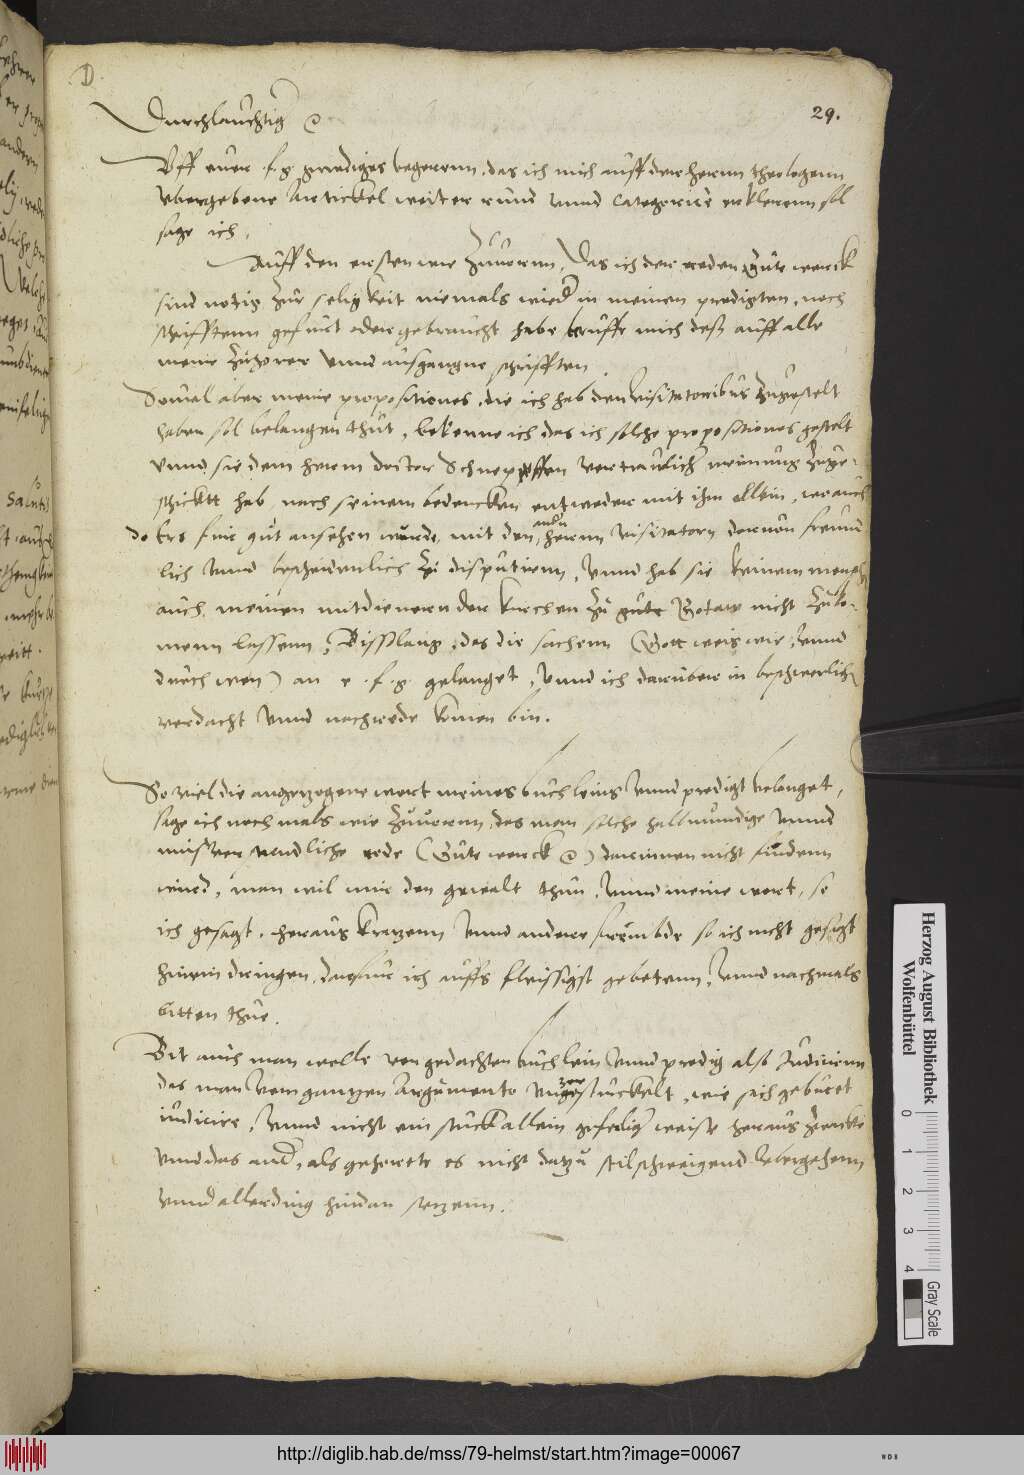 D
29.
Durchlauchtig &
Uff euer f. g. gnediges begerenn, das ich mich auff der herrn theologenn
ubergebene Artickel weiter rund unnd categorice erklerenn sol
sage ich.
Auff den ersten wie zuuornn, Das ich der reden Gute werck
sind notig zur seligkeit niemals wied in meinen predigten, noch
schrifftenn gefurt oder gebraucht habe beruffe mich deß auff alle
meine zuhorer unnd ausgangne schrifften.
Souiel aber meine propositiones, die ich hab den visitatoribus zugestelt
haben sol belangen thut, bekenne ich das ich solche propositiones gestelt
unnd sie dem herrn doctor Schnepffen vertraulich meinung zuge-
schicktt hab nach seinem bedencken entweder mit ihm allein, wo auch
do ers fur gut ansehen wurde mit den andn herrnn visitatorn daruon freund
lich unnd bescheidenlich zu disputirenn, unnd hab sie keinem mensch
auch meinen mitdienern der kirchen zu Gotaw nicht zuko-
menn lassenn, Bisslang, das die sachenn (Gott weis wie, unnd
durch wen) an e. f. g. gelanget, unnd ich daruber in beschwerlich
verdacht unnd nachrede komen bin.
So viel die angezogene wort meines buchleins unnd predigt belanget,
sage ich nochmals wie zuuornn, das man solche hallmundige unnd
mißverstendliche rede (Gute werck &) darinnen nicht findenn
wird, man wil mir den gewalt thun, unnd meine wort, so
ich gesagt, heraus kratzenn unnd andere frembde so ich nicht gesagt
hinein dringen, dafur ich auffs fleissigst gebetenn, unnd nachmals
bitten thue.
Bit auch man wolle von gedachten buchlein unnd predig also Judicirenn
das man vom gantzen Argumento unzerstuckelt, wie sich geburet
iudicire, unnd nicht ein stuck allein geferlicher weise heraus zwacke
unnd das and, als gehorete es nicht datzu stilschweigend ubergehenn
unnd allerding hindan setzenn.
Herzog August Bibliothek
Wolfenbüttel
0 1 2 3 4
Gray Scale
http://diglib.hab.de/mss/79-helmst/start.htm?image=00067
WDB